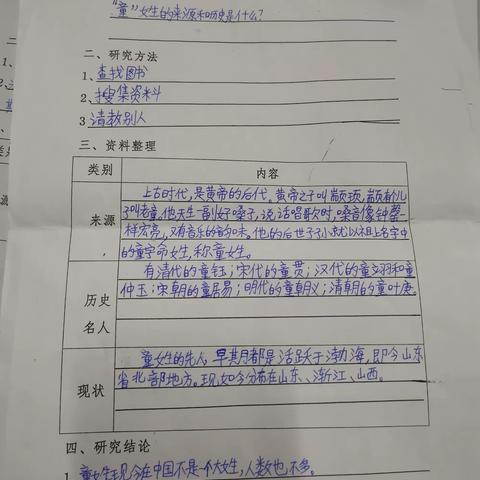 “童”姓的来源和历史是什么？
二、研究方法
1、查找图书
2、搜集资料
3 请教别人
三、资料整理
类别 内容
来源
上古时代，是黄帝的后代，黄帝之子叫颛顼，颛顼有儿
叫老童，他天生一副好嗓子，说话唱歌时，嗓音像钟磬一
样宏亮，又有音乐的韵味。他的后世子孙就以祖上名字中
的童字命姓，称童姓。
历史名人
有清代的童钰；宋代的童贯；汉代的童翊和童
仲玉；宋朝的童居易；明代的童朝义；清朝的童叶庚。
现状
童姓的先人，早其月都是活跃于渤海，即今山东
省北部地方。现如今分布在山东、浙江、山西。
四、研究结论
1、童姓现今在中国不是一个大姓，人数也不多。